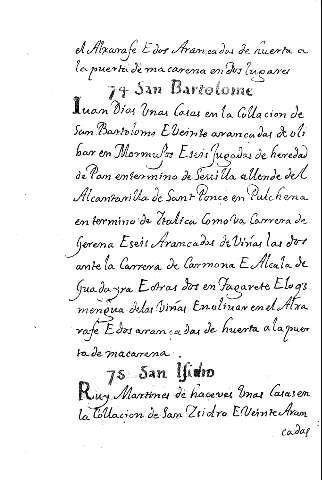 el Alxarafe E dos Arancadas de huerta a
la puerta de macarena en dos lugares
74 San Bartolome
Iuan Dios Unas Casas en la Collacion de
San Bartolomo E Veinte arancadas de oli
bar en Mormujos E seis jugadas de heredad
de Pan en termino de Sevilla allende del
Alcantarilla de Sant Ponce en Pulchena
en termino de Italica Como va Carrera de
Gerena E seis Arancadas de Viñas las dos
ante la Carrera de Carmona E Alcala de
Guadayra E otras dos en Tagarete E lo q3
mengua de las Viñas En olivar en el Alxa
rafe E dos arrancadas de huerta a la puer
ta de macarena
75 San Isidro
Ruy Martines de haceves Unas Casas en
la Collacion de San Ysidro E Veinte Aran
cadas